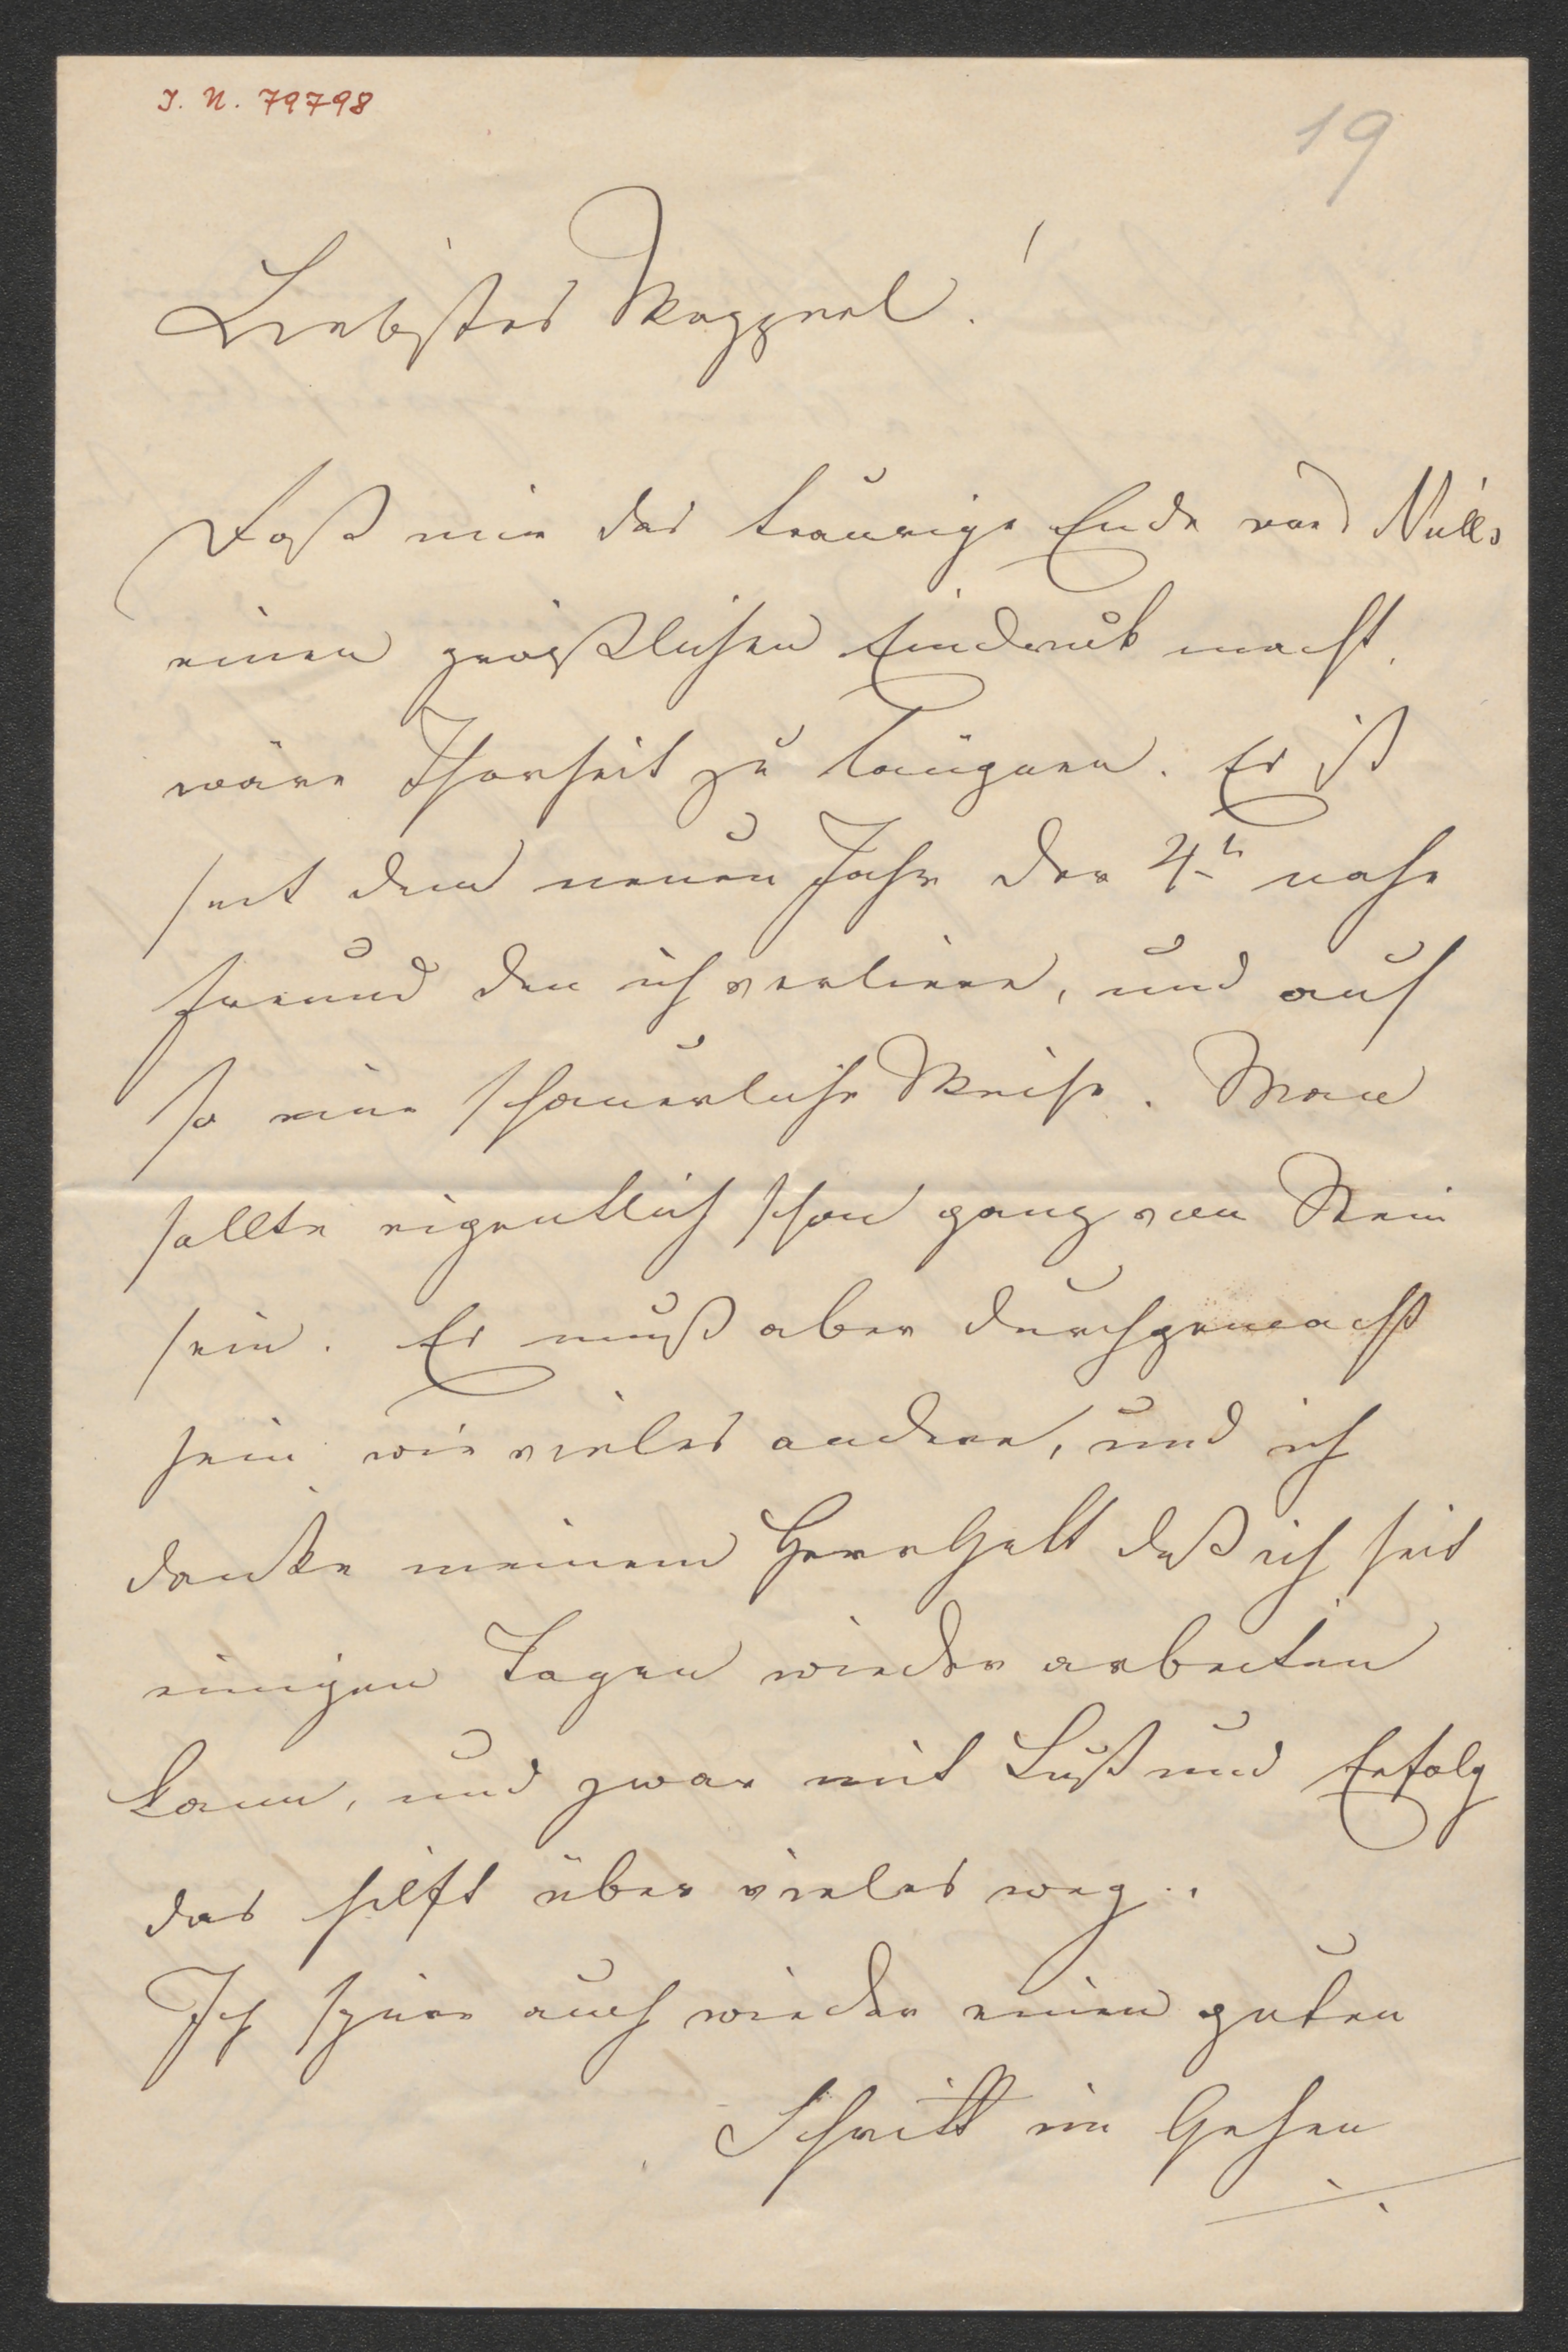 I. N. 79798
19
Liebstes Weggerl!
Daß mir das traurige Ende van d Nülls
einen gräßlichen Eindruk macht,
wäre Thorheit zu läugnen. Er ist
seit dem neuen Jahr der 4te nahe
Freund den ich verliere, und auf
so eine schauerliche Weise. Man
sollte eigentlich schon ganz von Stein
sein. Es muß aber durchgemacht
sein wie vieles andere, und ich
danke meinem HerrGott daß ich seit
einigen Tagen wieder arbeiten
kann, und zwar mit Lust und Erfolg
das hilft über vieles weg.
Ich spüre auch wieder einen guten
Schritt im Gehen